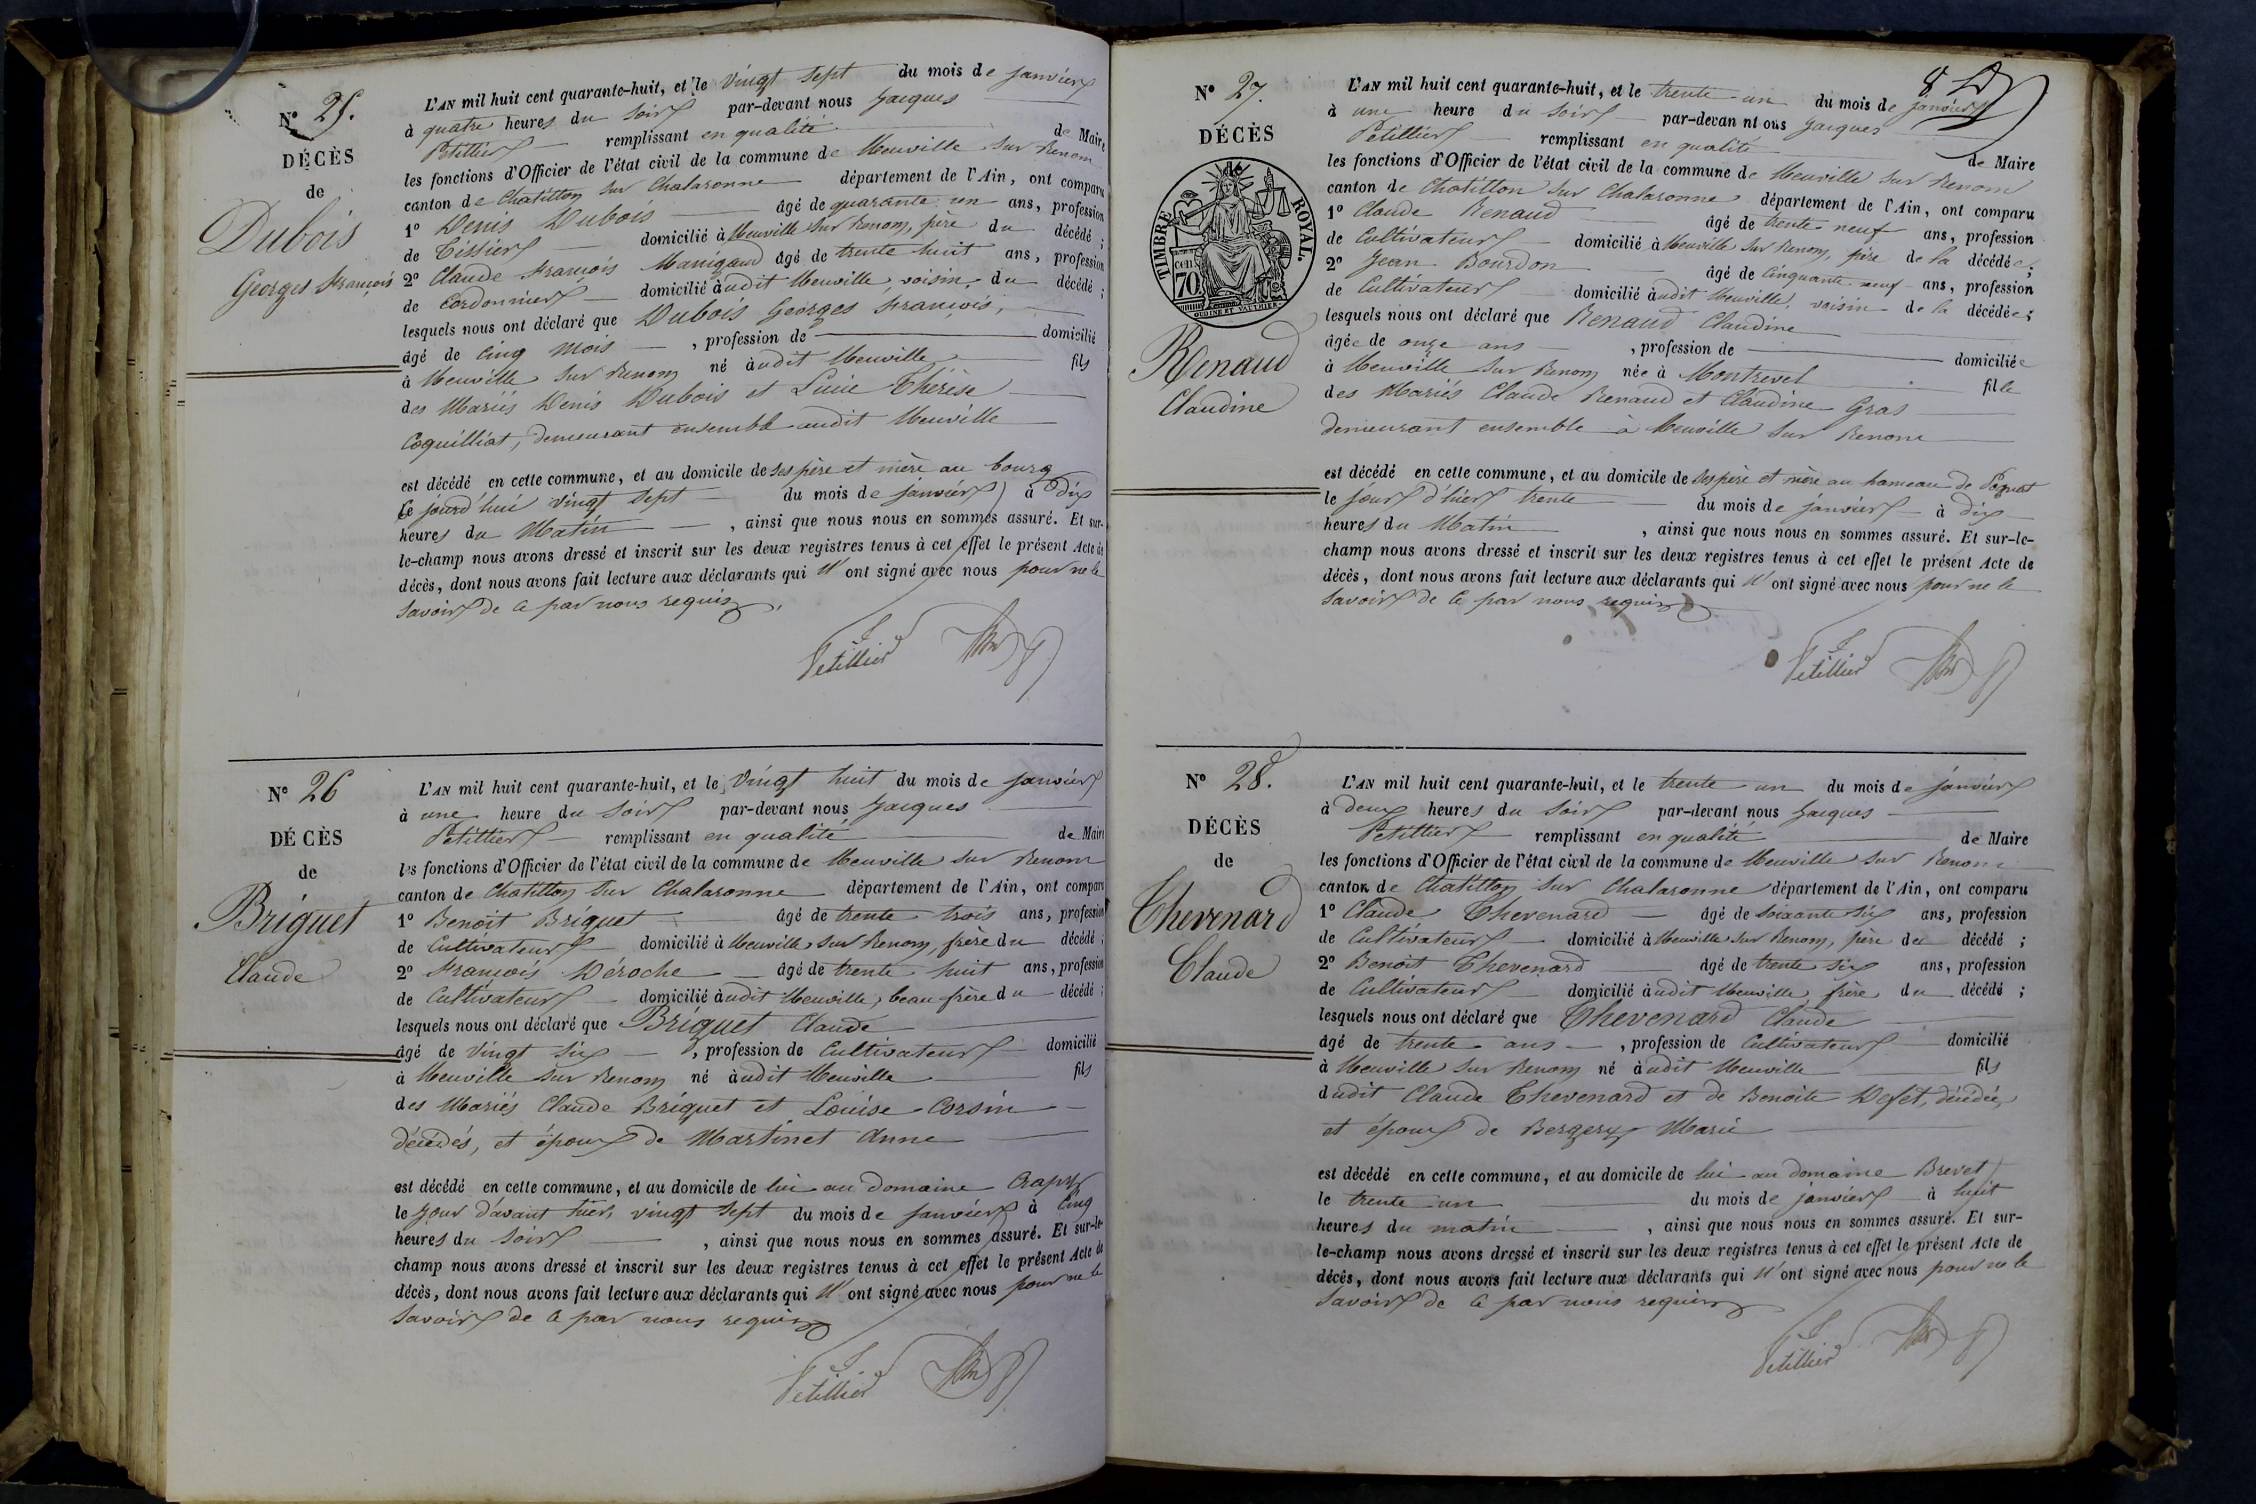 N° 25.
DÉCÈS
de
Dubois
Georges François
L'AN mil huit cent quarante-huit, et le vingt sept du mois de janvier
à quatre heures du soir par-devant nous Jacques
Petillier remplissant en qualité de Maire
les fonctions d'Officier de l'état civil de la commune de Neuville sur Renom
canton de Chatillon sur Chalaronne département de l'Ain, ont comparu
1° Denis Dubois âgé de quarante un ans, profession
de Tissier domicilié à Neuville sur Renom, père du décédé ;
2° Claude François Manigand âgé de trente huit ans, profession
de Cordonnier domicilié audit Neuville, voisin du décédé ;
lesquels nous ont déclaré que Dubois Georges François,
âgé de cinq mois , profession de domicilié
à Neuville sur Renom né audit Neuville fils
des Mariés Denis Dubois et Lucie Thérèse
Coquilliat, demeurant ensemble audit Neuville
est décédé en cette commune, et au domicile de ses père et mère au bourg
le jourd'hui vingt sept du mois de janvier à dix
heures du Matin , ainsi que nous nous en sommes assuré. Et sur-
le-champ nous avons dressé et inscrit sur les deux registres tenus à cet effet le présent Acte de
décès, dont nous avons fait lecture aux déclarants qui n'ont signé avec nous pour ne le
savoir de ce par nous requis.
Petillier
N° 26
DÉCÈS
de
Briguet
Claude
L'AN mil huit cent quarante-huit, et le vingt huit du mois de janvier
à une heure du soir par-devant nous Jacques
Petillier remplissant en qualité de Maire
les fonctions d'Officier de l'état civil de la commune de Neuville sur Renom
canton de Chatillon sur Chalaronne département de l'Ain, ont comparu
1° Benoit Briguet âgé de trente trois ans, profession
de Cultivateur domicilié à Neuville sur Renom, frère du décédé ;
2° François Déroche âgé de trente huit ans, profession
de Cultivateur domicilié audit Neuville, beau frère du décédé ;
lesquels nous ont déclaré que Briguet Claude
âgé de vingt six , profession de Cultivateur domicilié
à Neuville sur Renom né audit Neuville fils
des Mariés Claude Briguet et Louise Corsin
décédés, et époux de Martinet Anne
est décédé en cette commune, et au domicile de lui au domaine Crapy
le jour d'avant hier, vingt sept du mois de janvier à cinq
heures du soir , ainsi que nous nous en sommes assuré. Et sur-le-
champ nous avons dressé et inscrit sur les deux registres tenus à cet effet le présent Acte de
décès, dont nous avons fait lecture aux déclarants qui n'ont signé avec nous pour ne le
savoir de ce par nous requis
Petillier
8
N° 27.
DÉCÈS
TIMBRE ROYAL.
70
Renaud
Claudine
L'AN mil huit cent quarante-huit, et le trente un du mois de janvier
à une heure du soir par-devan nt ous Jacques
Petillier remplissant en qualité de Maire
les fonctions d'Officier de l'état civil de la commune de Neuville sur Renom
canton de Chatillon sur Chalaronne département de l'Ain, ont comparu
1° Claude Renaud âgé de trente neuf ans, profession
de Cultivateur domicilié à Neuville sur Renom, père de la décédée ;
2° Jean Bourdon âgé de Cinquante neuf ans, profession
de Cultivateur domicilié audit Neuville, voisin de la décédée ;
lesquels nous ont déclaré que Renaud Claudine
âgée de onze ans , profession de domiciliée
à Neuville sur Renom née à Montrevel fille
des Mariés Claude Renaud et Claudine Gras
demeurant ensemble à Neuville sur Renom
est décédé en cette commune, et au domicile de ses père et mère au hameau de Pognat
le jour d'hier trente du mois de janvier à dix
heures du Matin , ainsi que nous nous en sommes assuré. Et sur-le-
champ nous avons dressé et inscrit sur les deux registres tenus à cet effet le présent Acte de
décès, dont nous avons fait lecture aux déclarants qui n'ont signé avec nous pour ne le
savoir de ce par nous requis
Petillier
N° 28.
DÉCÈS
de
Thevenard
Claude
L'AN mil huit cent quarante-huit, et le trente un du mois de janvier
à deux heures du soir par-devant nous Jacques
Petillier remplissant en qualité de Maire
les fonctions d'Officier de l'état civil de la commune de Neuville sur Renom
canton de Chatillon sur Chalaronne département de l'Ain, ont comparu
1° Claude Thevenard âgé de soixante six ans, profession
de Cultivateur domicilié à Neuville sur Renom, père du décédé ;
2° Benoit Thevenard âgé de trente six ans, profession
de Cultivateur domicilié audit Neuville, frère du décédé ;
lesquels nous ont déclaré que Thevenard Claude
âgé de trente ans , profession de Cultivateur domicilié
à Neuville sur Renom né audit Neuville fils
dudit Claude Thevenard et de Benoite Defet, décédée,
et époux de Bergery Marie
est décédé en cette commune, et au domicile de lui au domaine Brevet
le trente un du mois de janvier à huit
heures du matin , ainsi que nous nous en sommes assuré. Et sur-
le-champ nous avons dressé et inscrit sur les deux registres tenus à cet effet le présent Acte de
décès, dont nous avons fait lecture aux déclarants qui n'ont signé avec nous pour ne le
savoir de ce par nous requis
Petillier